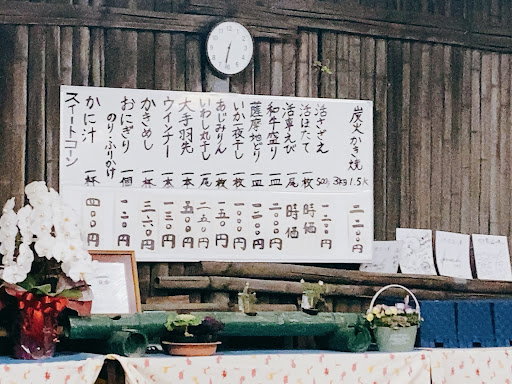 炭火かき焼 3kg 1.5k 二二〇〇円
活さざえ 500g
活ほたて 一枚 時価
活車えび 一尾 時価
和牛盛り 一皿
薩摩地どり 一皿
いか一夜干し 一枚
あじみりん 一枚 一五〇円
いわし丸干し 一尾 二五〇円
大手羽先 一本 五〇〇円
ウインナー 一本 一三〇円
かきめし 一杯 三六〇円
おにぎり 一個 一二〇円
のり・ふりかけ
かに汁 一杯 四〇〇円
スイートコーン